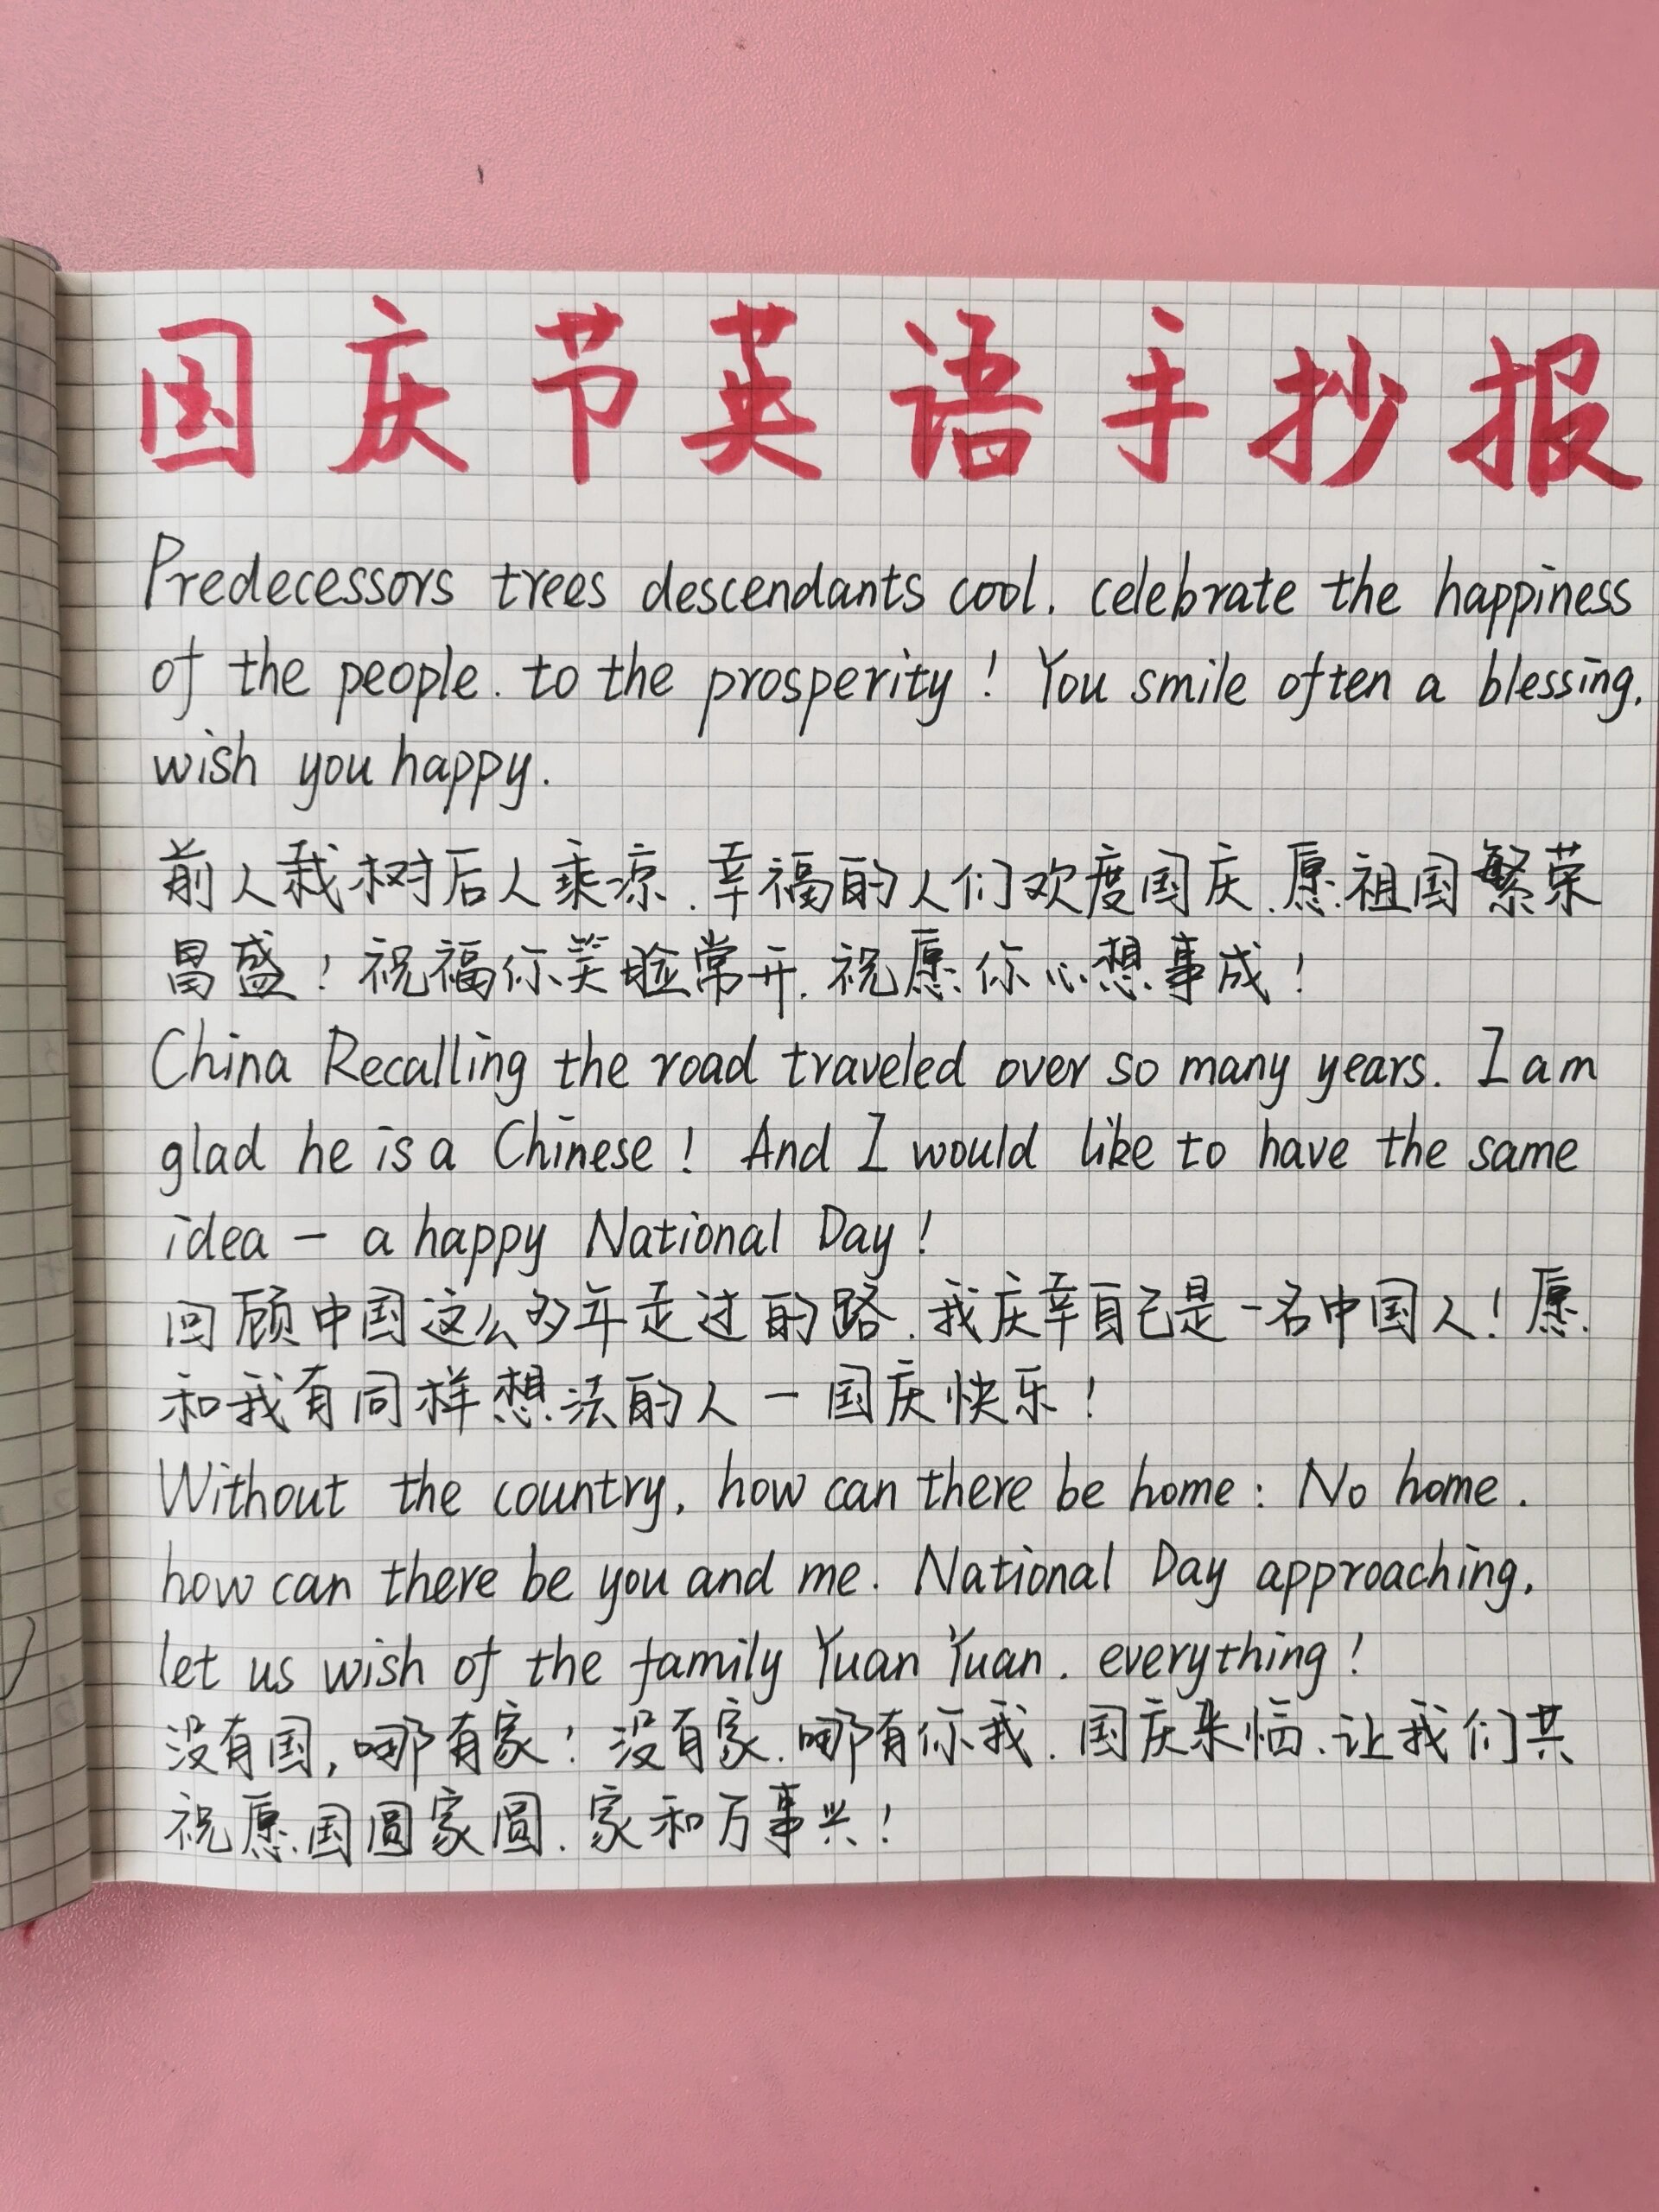 国庆节英语手抄报
Predecessors trees descendants cool. celebrate the happiness
of the people. to the prosperity! You smile often a blessing.
wish you happy.
前人栽树后人乘凉.幸福的人们欢度国庆.愿祖国繁荣
昌盛!祝福你笑脸常开.祝愿你心想事成!
China Recalling the road traveled over so many years. I am
glad he is a Chinese! And I would like to have the same
idea - a happy National Day!
回顾中国这么多年走过的路.我庆幸自己是一名中国人!愿
和我有同样想法的人-国庆快乐!
Without the country. how can there be home: No home.
how can there be you and me. National Day approaching.
let us wish of the family Yuan Yuan. everything!
没有国,哪有家!没有家.哪有你我.国庆来临.让我们共
祝愿国圆家圆.家和万事兴!